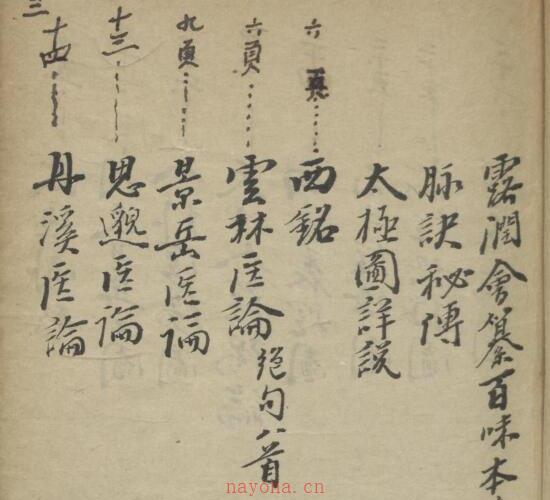 露潤會纂百味本
脉訣秘傳
太極圖詳說
西銘 六頁
雲林医論 絕句八首 六頁
景岳医論 九頁
思邈医論 十三
丹溪医論 十四
三
nayona.cn